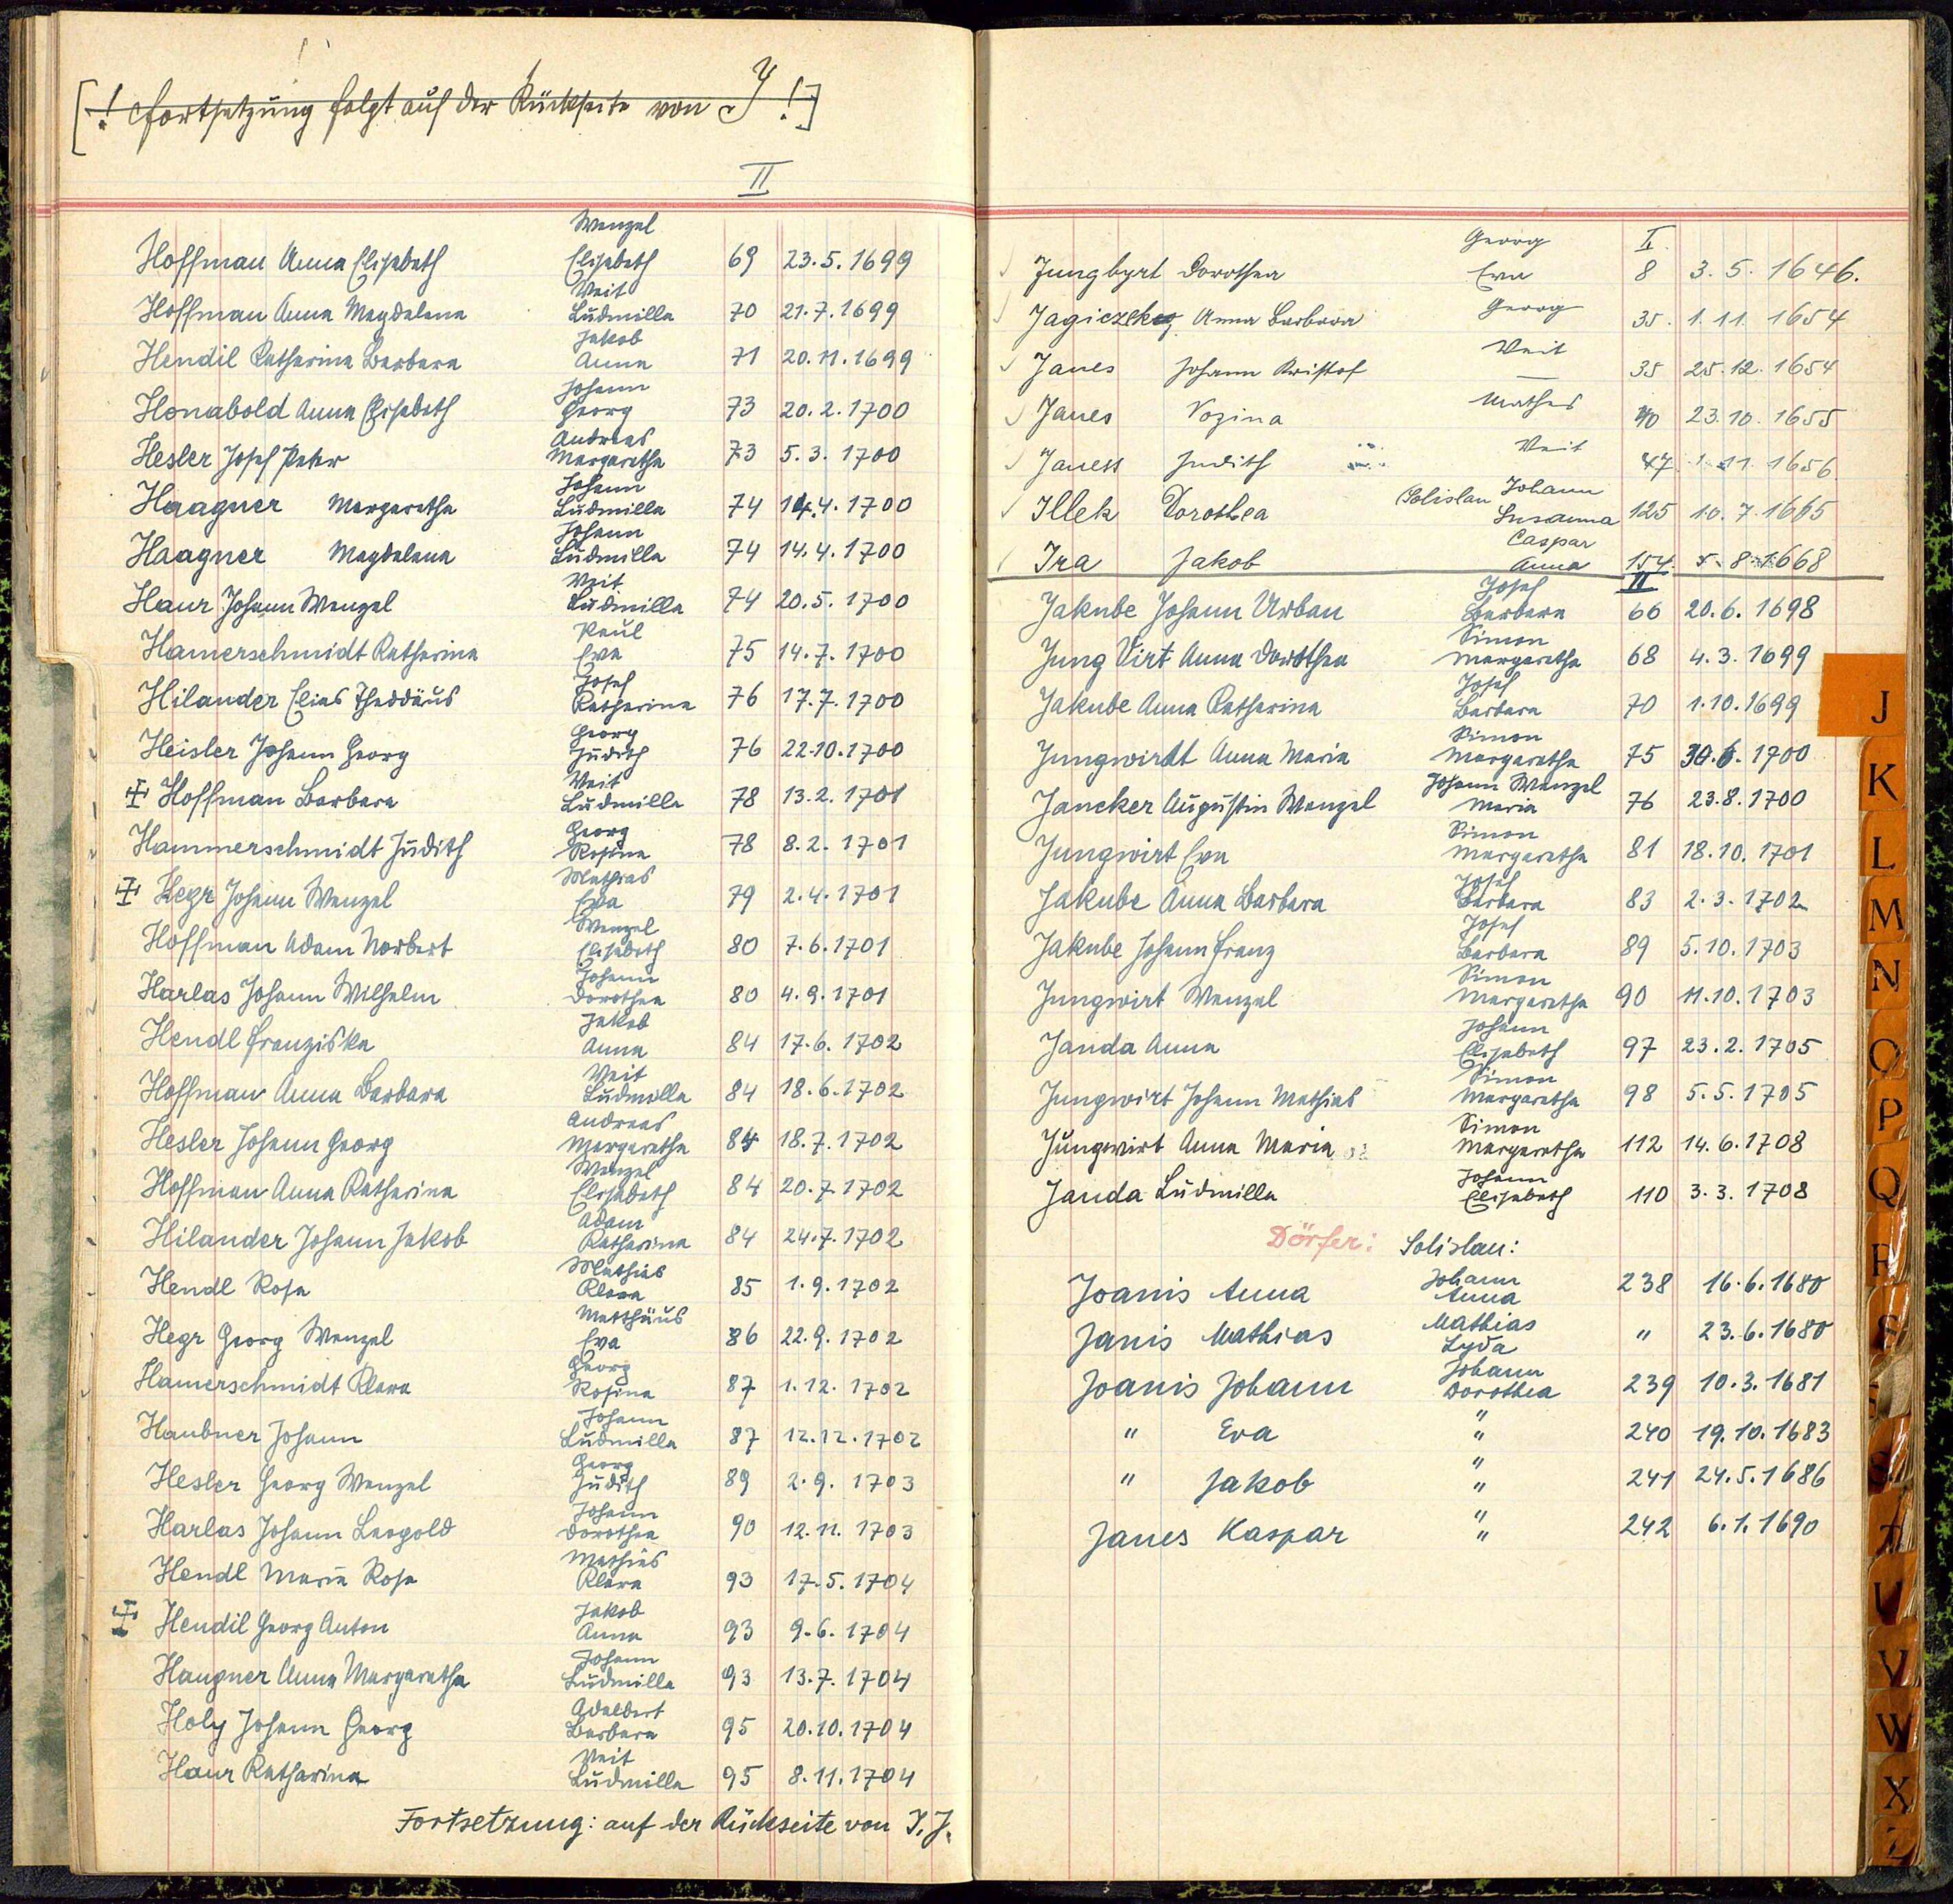 [! Fortsetzung folgt auf der Rückseite von J !]
II
Wenzel
Hoffman Anna Elisabeth Elisabeth 69 23.5.1699
Veit
Hoffman Anna Magdalena Ludmilla 70 21.7.1699
Jakob
Hendil Katharina Barbara Anna 71 20.11.1699
Johann
Honabold Anna Elisabeth Georg 73 20.2.1700
Andreas
Hesler Josef Peter Margaretha 73 5.3.1700
Johann
Haagner Margaretha Ludmilla 74 14.4.1700
Johann
Haagner Magdalena Ludmilla 74 14.4.1700
Veit
Haur Johann Wenzel Ludmilla 74 20.5.1700
Paul
Hamerschmidt Katharina Eva 75 14.7.1700
Josef
Hilander Elias Thaddäus Katharina 76 17.7.1700
Georg
Heisler Johann Georg Judith 76 22.10.1700
Veit
Hoffman Barbara Ludmilla 78 13.2.1701
Georg
Hammerschmidt Judith Rosina 78 8.2.1701
Mathias
Hegr Johann Wenzel Eva 79 2.4.1701
Wenzel
Hoffman Adam Norbert Elisabeth 80 7.6.1701
Johann
Harlas Johann Wilhelm Dorothea 80 4.9.1701
Jakob
Hendl Franziska Anna 84 17.6.1702
Veit
Hoffman Anna Barbara Ludmilla 84 18.6.1702
Andreas
Hesler Johann Georg Margaretha 84 18.7.1702
Wenzel
Hoffman Anna Katharina Elisabeth 84 20.7.1702
Adam
Hilander Johann Jakob Katharina 84 24.7.1702
Mathias
Hendl Rosa Klara 85 1.9.1702
Matthäus
Hegr Georg Wenzel Eva 86 22.9.1702
Georg
Hamerschmidt Klara Rosina 87 1.12.1702
Johann
Haubner Johann Ludmilla 87 12.12.1702
Georg
Hesler Georg Wenzel Judith 89 2.9.1703
Johann
Harlas Johann Leopold Dorothea 90 12.11.1703
Mathias
Hendl Maria Rosa Klara 93 17.5.1704
Jakob
Hendil Georg Anton Anna 93 9.6.1704
Johann
Haugner Anna Margaretha Ludmilla 93 13.7.1704
Adalbert
Holy Johann Georg Barbara 95 20.10.1704
Veit
Haur Katharina Ludmilla 95 8.11.1704
Fortsetzung: auf der Rückseite von I.J.
Georg I.
Jungbyrt Dorothea Eva 8 3.5.1646.
Georg
Anna Barbara 35. 1.11.1654
Veit
Janes Johann Kristof — 35 25.12.1654
Mathes
Janes Rozina 40 23.10.1655
Veit
Janess Judith 47 1.11.1656
Johann
Illek Dorothea Solislau Susanna 125 10.7.1665
Caspar
Ira Jakob Anna 154. 5.8.1668
Josef II
Jakube Johann Urban Barbara 66 20.6.1698
Simon
Jung Virt Anna Dorothea Margaretha 68 4.3.1699
Josef
Jakube Anna Katharina Barbara 70 1.10.1699
Simon
Jungwirdt Anna Maria Margaretha 75 30.6.1700
Johann Wenzel
Jancker Augustin Wenzel Maria 76 23.8.1700
Simon
Jungwirt Eva Margaretha 81 18.10.1701
Josef
Jakube Anna Barbara Barbara 83 2.3.1702
Josef
Jakube Johann Franz Barbara 89 5.10.1703
Simon
Jungwirt Wenzel Margaretha 90 11.10.1703
Johann
Janda Anna Elisabeth 97 23.2.1705
Simon
Jungwirt Johann Mathias Margaretha 98 5.5.1705
Simon
Jungwirt Anna Maria Margaretha 112 14.6.1708
Johann
Janda Ludmilla Elisabeth 110 3.3.1708
Dörfer: Solislau:
Johann
Joanis Anna Anna 238 16.6.1680
Mathias
Janis Mathias Lyda " 23.6.1680
Johann
Joanis Johann Dorothea 239 10.3.1681
"
" Eva " 240 19.10.1683
"
" Jakob " 241 24.5.1686
"
Janes Kaspar " 242 6.1.1690
J
K
L
M
N
O
P
Q
R
S
S
T
U
V
W
X
Z